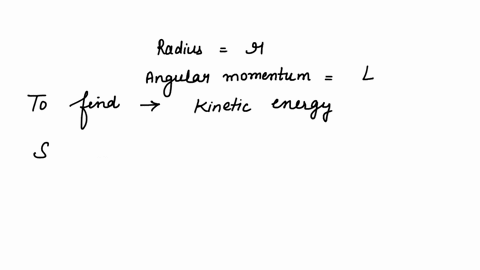 Radius = r
Angular momentum = L
To find → Kinetic energy
S